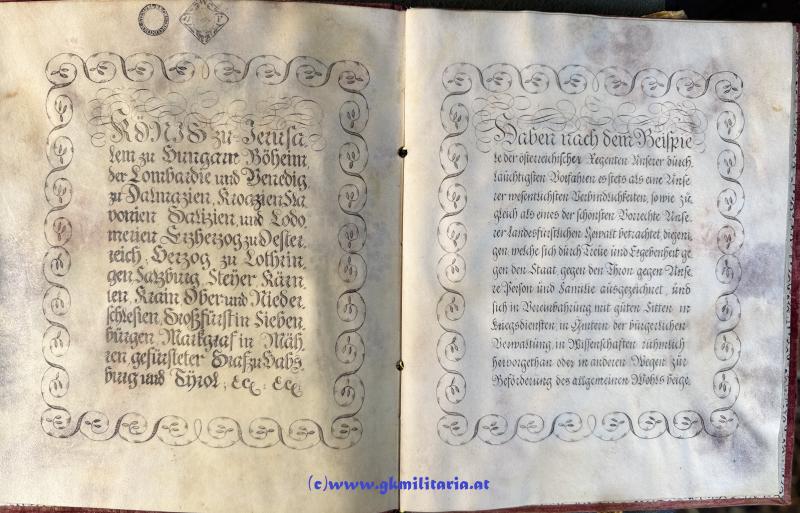 KÖNIG zu Jerusa,
lem zu Hungarn Böheim,
der Lombardie und Venedig,
zu Dalmazien, Kroazien Sla
vonien Galizien, und Lodo,
merien Erzherzog zu Oester,
reich, Herzog zu Lothrin,
gen Salzburg, Steyer, Kärn,
ten, Krain Ober und Nieder
schlesien, Großfürst in Sieben,
bürgen Markgraf in Mäh,
ren gefürsteter Graf zu Habs,
burg und Tyrol, &c: &c:
Haben nach dem Beispie
le der österreichischer Regenten Unserer durch
läuchtigsten Vorfahren es stets als eine Unse
rer wesentlichsten Verbindlichkeiten, so wie zu,
gleich als eines der schönsten Vorrechte Unse
rer landesfürstlichen Gewalt betrachtet diejeni,
gen welche sich durch Treue und Ergebenheit ge
gen den Staat gegen den Thron gegen Unse,
re Person und Familie ausgezeichnet, und
sich in Vereinbahrung mit guten Sitten in
Kriegsdiensten, in Ämtern der bürgerlichen
Verwaltung, in Wissenschaften rühmlich
hervorgethan oder in anderen Wegen zur
Beförderung des allgemeinen Wohls beige,
(c)www.gkmilitaria.at